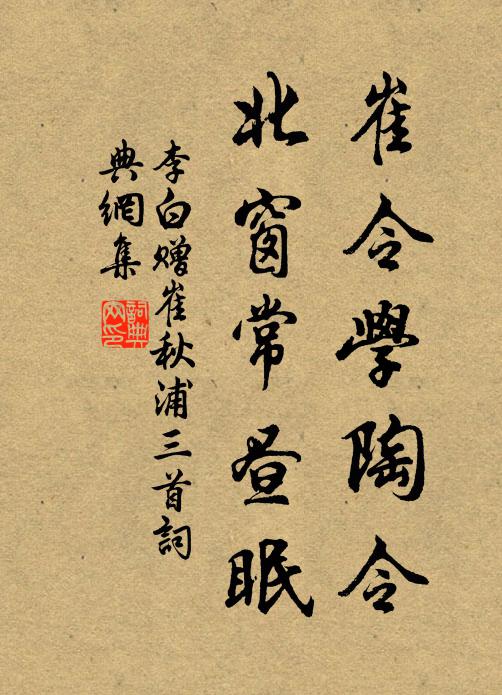 崔令學陶令
北窗常昼眠
李白贈崔秋浦三首詞
典網集
詞典網印